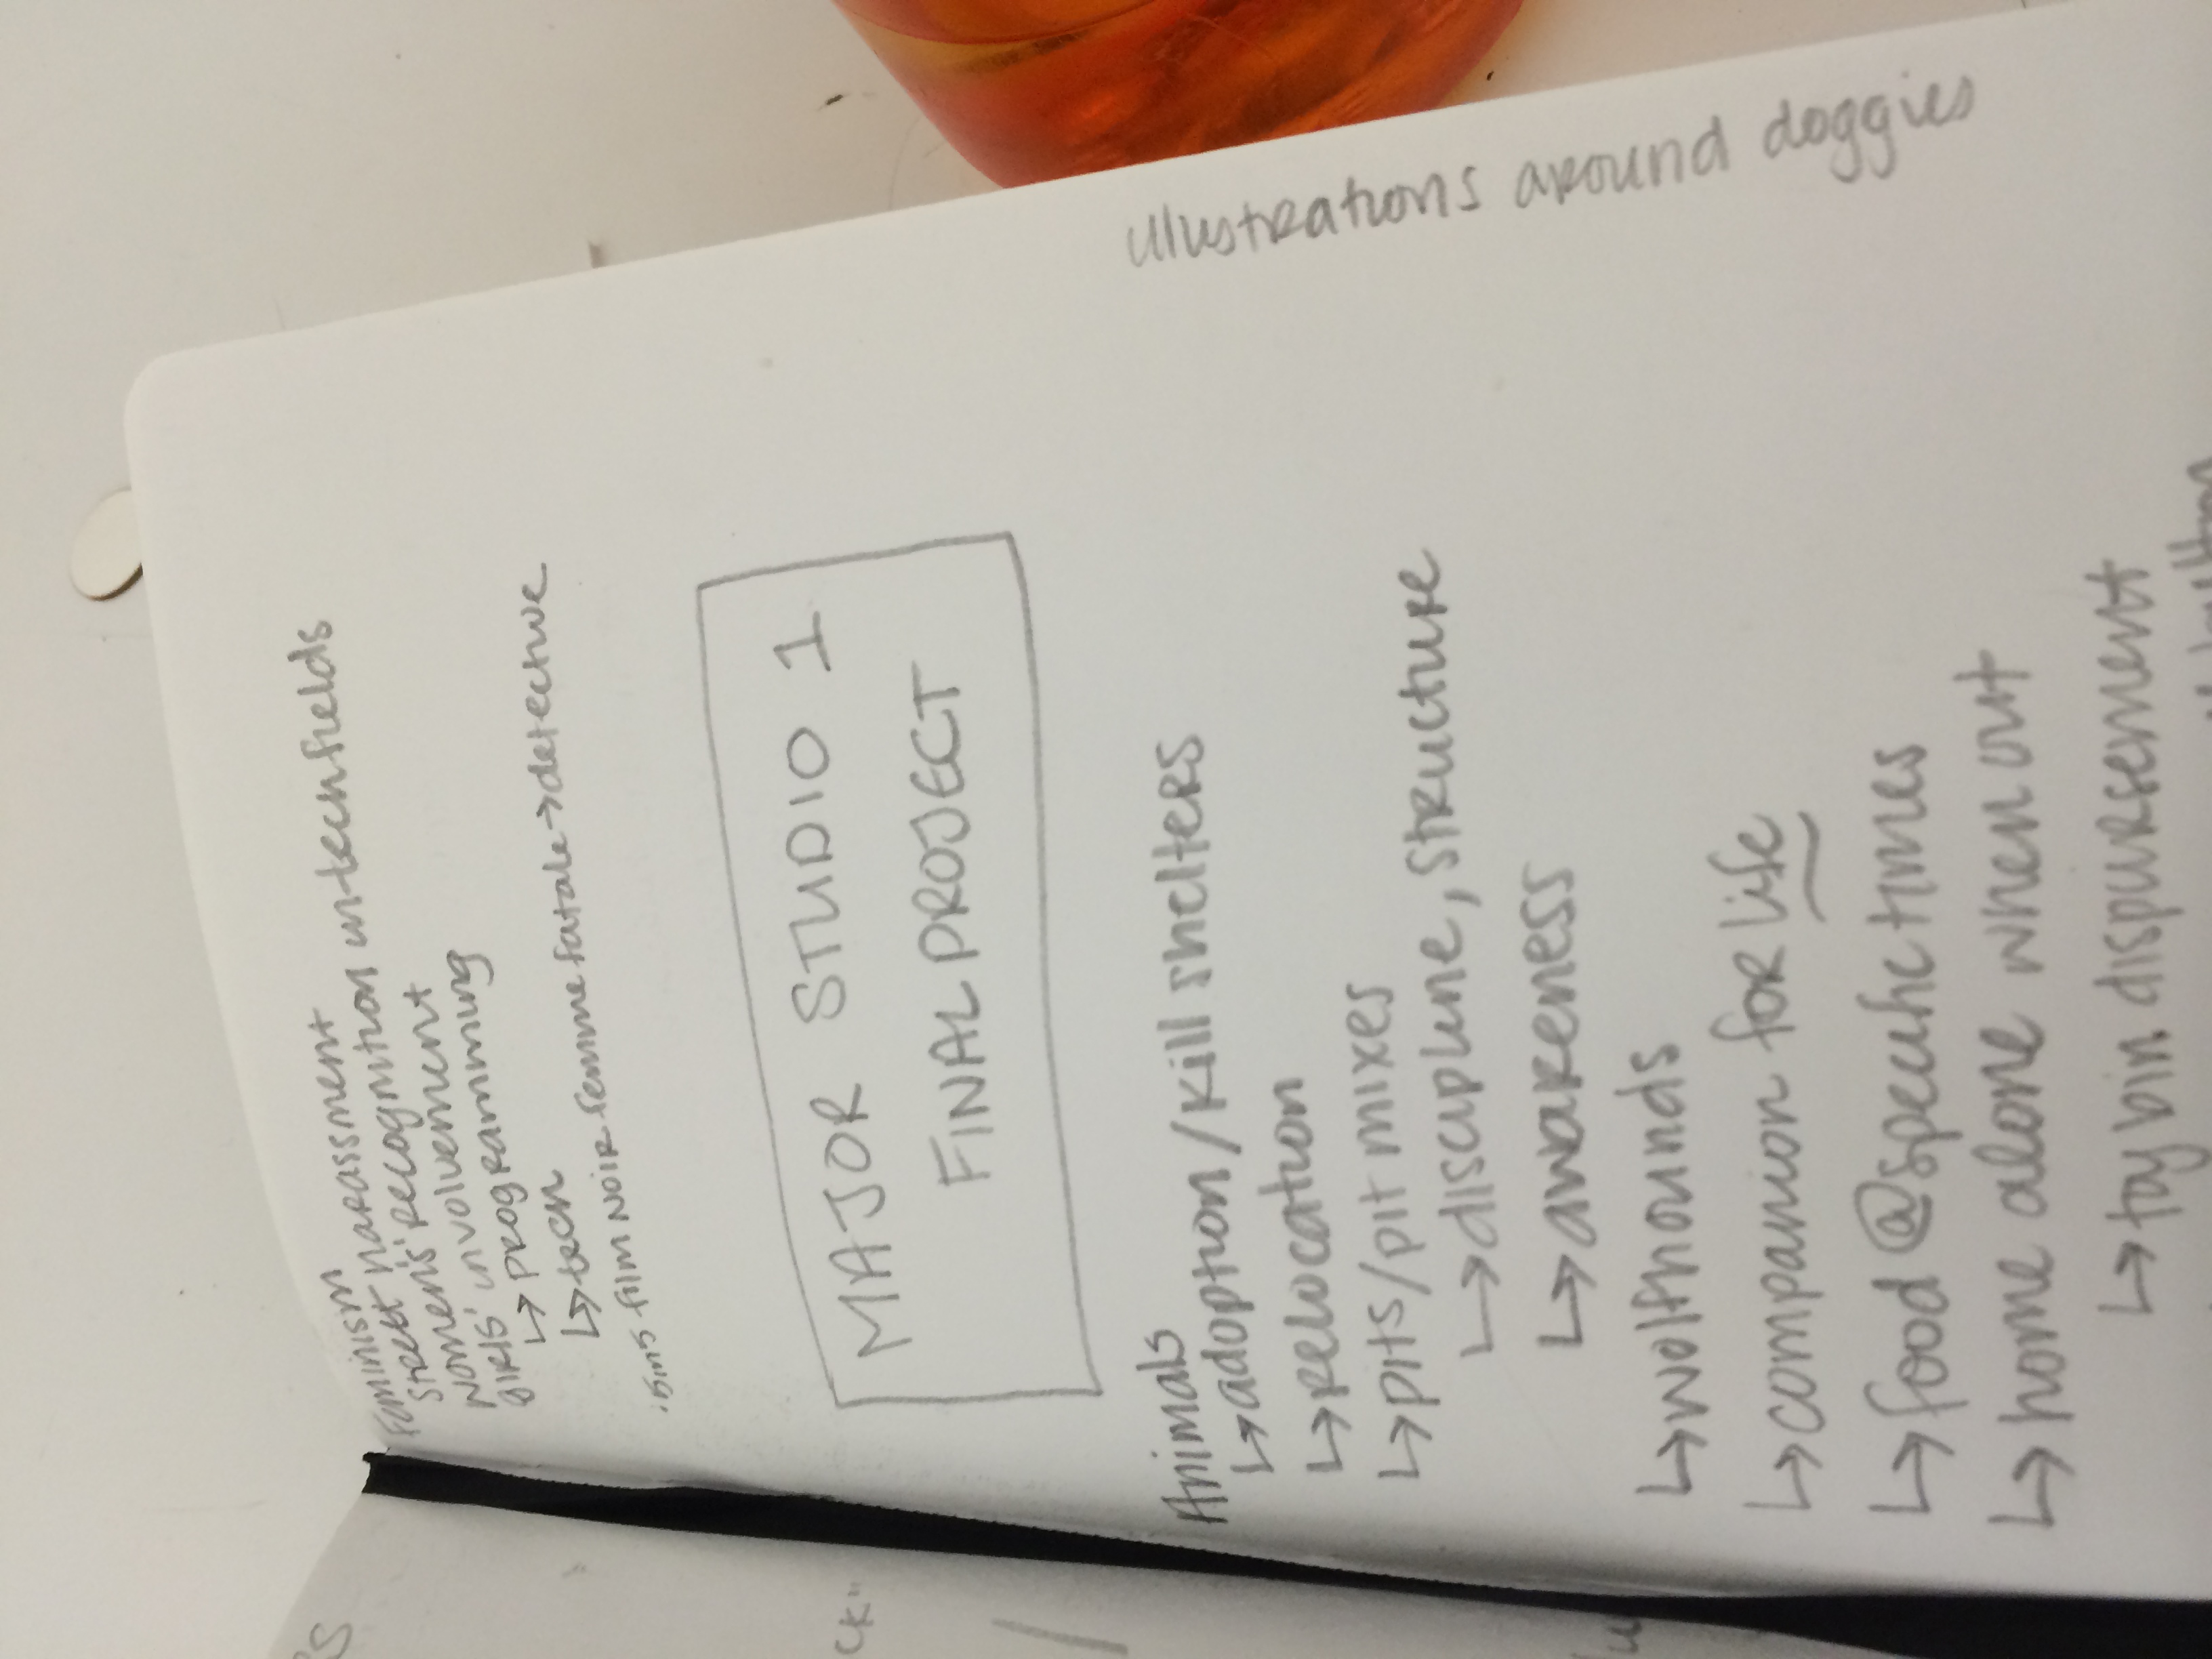 Feminism
street harassment
women's' recognition in tech fields
girls' involvement
↳ programming
↳ tech
·5in5 film noir femme fatale → detective
MAJOR STUDIO 1
FINAL PROJECT
Animals
↳ adoption/kill shelters
↳ relocation
↳ pits/pit mixes
↳ discipline, structure
↳ awareness
↳ wolfhounds
↳ companion for life
↳ food @ specific times
↳ home alone when out
↳ toy bin dispursement
button
illustrations around doggies